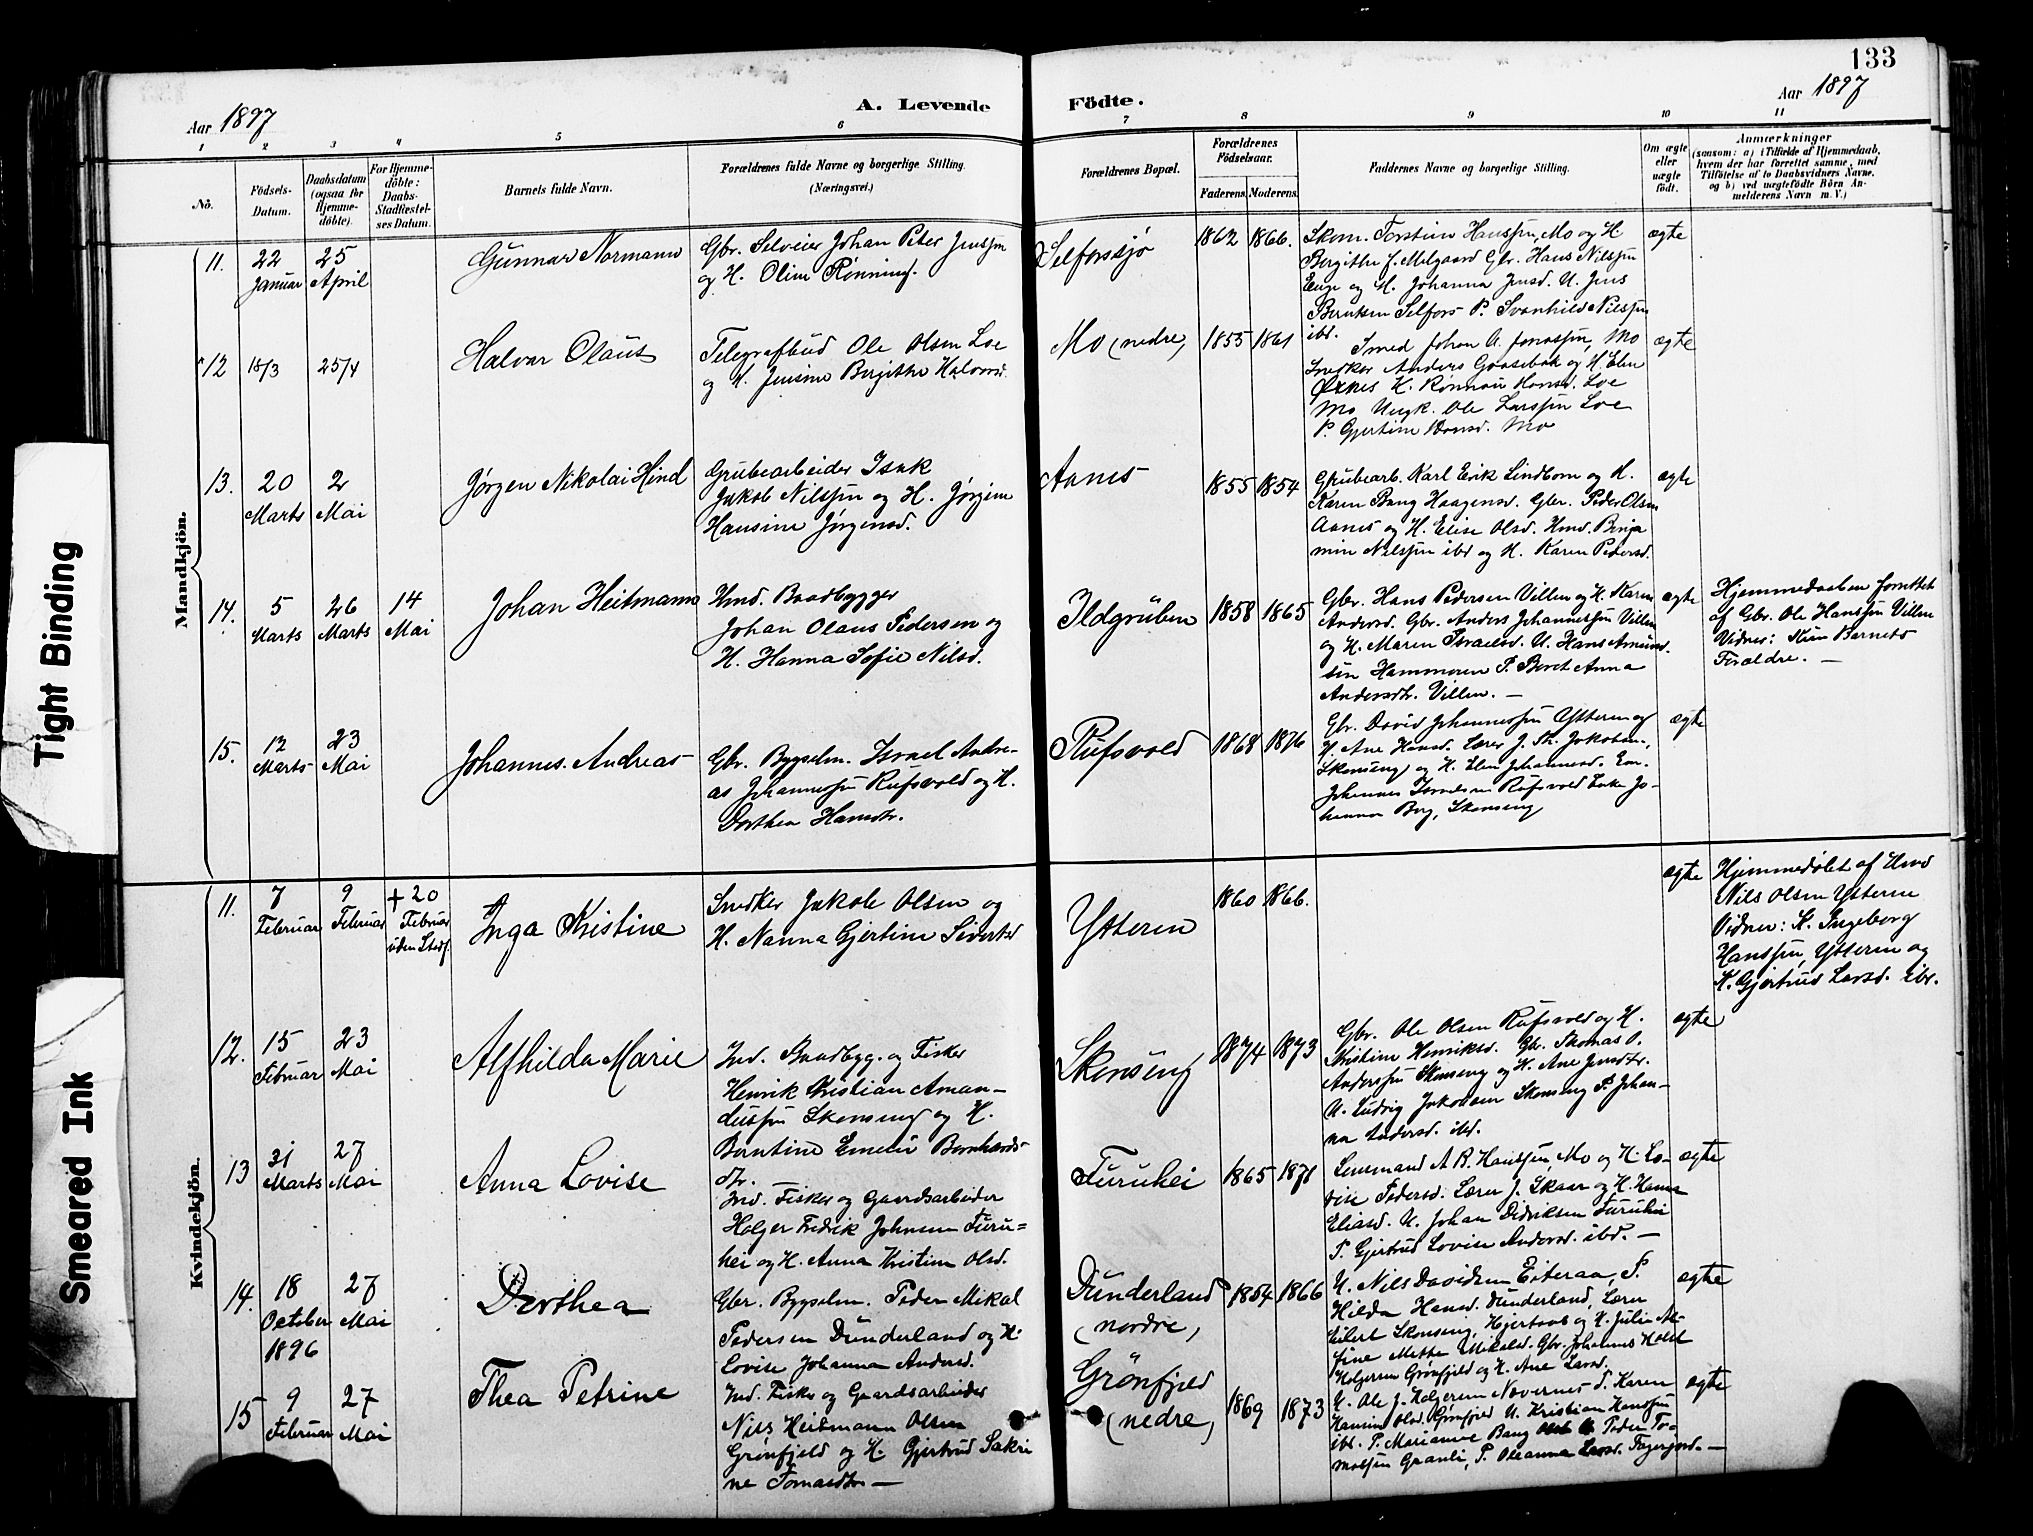 133
Aar 1897
A. Levende
Födte.
Aar 1897
1
2
3
4
5
6
7
8
9
10
11
No.
Födsels-
Datum.
Daabsdatum
(ogsaa for
Hjemme-
döbte).
For Hjemme-
döbte:
Daabs-
Stadfæstel-
ses Datum.
Barnets fulde Navn.
Forældrenes fulde Navne og borgerlige Stilling.
(Næringsvei.)
Forældrenes Bopæl.
Forældrenes
Födselsaar.
Faderens.
Moderens.
Faddernes Navne og borgerlige Stilling.
Om ægte
eller
uægte
födt.
Anmærkninger
(saasom: a) i Tilfælde af Hjemmedaab,
hvem der har forrettet samme, med
Tilföielse af to Daabsvidners Navne,
og b) ved uægtefödte Börn An-
melderens Navn m. V.)
Mandkjön.
11.
22
Januar
25
April
Gunnar Normann
Gbr. Selveier Johan Peter Jenssen
og H. Oline Rønning.
Selforssjø
1862
1866.
Skom. Torstein Hanssen, Mo og H
Bergithe f. Melgaard Gbr. Hans Nilssen
Enge og H. Johanna Jensd. U. Jens
Berntsen Selfors P. Svanhild Nilssen
ibd.
ægte
12
18/3
25/4
Halvar Olaus
Telegrafbud Ole Olsen Loe
og H. Jensine Birgithe Halvorsd.
Mo (nedre)
1855
1861
Smed Johan A. Jonassen, Mo
Snedker Anders Gaasebak og H. Elen
Øxnes K. Rønnau Hansd. Loe
Mo Ungk. Ole Larssen Loe
P. Gjertine Hansd. Mo
ægte
13.
20
Marts
2
Mai
Jørgen Nikolai Hind
Grubearbeider Isak
Jakob Nilssen og H. Jørgine
Hansine Jørgensd.
Aanes
1855
1854
Grubearb. Karl Erik Lindborn og H.
Karen Bang Haagensd. Gbr. Peder Olsen
Aanes og H. Elise Olsd. Hmd. Benja
min Nilssen ibd og H. Karen Pedersd.
ægte
14.
5
Marts
26
Marts
14
Mai
Johan Heitmann
Hmd. Baadbygger
Johan Olaus Pedersen og
H. Hanna Sofie Nilsd.
Ildgruben
1858
1865
Gbr. Hans Pedersen Villen og H. Karen
Andersd. Gbr. Anders Johannessen Villen
og H. Maren Israelsd. U. Hans Amund
sen Hammeren P. Beret Anna
Andersdtr. Villen. —
ægte
Hjemmedaaben forrettet
af Gbr. Ole Hanssen Villen
Vidner: Kun Barnets
Forældre. —
15.
12
Marts
23
Mai
Johannes Andreas
Gbr. Bygselm. Israel Andre-
as Johannessen Rufsvold og H.
Dorthea Hansdtr.
Rufsvold
1868
1876
Gbr. David Johannessen Ytteren og
H. Ane Hansd. Lærer J. Th. Jakobsen,
Skonseng og H. Elen Johannesd. Em.
Johannes Israelsen Rufsvold Enke Jo-
hanna Berg, Skonseng
ægte
Kvindekjön.
11.
7
Februar
9
Februar
+ 20
Februar
uden Stadf
Inga Kristine
Snedker Jakob Olsen og
H. Nanna Gjertine Sivertsd
Ytteren
1860
1866.
ægte
Hjemmedøbt af Hmd
Nils Olsen Ytteren
Vidner: K. Ingeborg
Hanssen, Ytteren og
K. Gjertrud Larsd. ibd.
12.
15
Februar
23
Mai
Alfhilda Marie
Ind. Baadbyg. og Fisker
Henrik Kristian Aman-
dussen Skonseng og H.
Berntine Emelie Bernhards-
dtr.
Skonseng
1874
1873
Gbr. Ole Olsen Rufsvold og H.
Kristine Henriksd. Gbr. Thomas O.
Anderssen Skonseng og H. Ane Jensdtr.
U. Ludvig Jakobsen Skonseng P. Johan-
na Andersd. ibd.
ægte
13
31
Marts
27
Mai
Anna Lovise
Ind. Fisker og Gaardsarbeider
Holger Fredrik Johnsen Furu-
hei og H. Anna Kristine Olsd.
Furuhei
1865
1871
Lensmand A B. Hanssen, Mo og H. Lo-
vise Pedersd. Lærer J. Skaar og H. Hanna
Eliasd. U. Johan Didriksen Furuhei
P. Gjertrud Lovise Andersd. ibd. —
ægte
14.
18
October
1896
27
Mai
Dorthea
Gbr. Bygselm. Peder Mikal
Pedersen Dunderland og H.
Lovise Johanna Andersd.
Dunderland
(nordre)
1854
1866
U. Nils Davidsen Eiteraa, P.
Hilda Hansd. Dunderland, Lærer
Eilert Skonseng, Hjertaas og H. Julie Al-
fine Mette Mikalsd. Gbr. Johannes Holst
Holgersen Grønfjeld og H. Ane Larsd.
ægte
15
9
Februar
27
Mai
Thea Petrine
Ind. Fisker og Gaardsarbeider
Nils Heitmann Olsen
Grønfjeld og H. Gjertrud Sakri
ne Tomasdtr. —
Grønfjeld
(nedre)
1869
1873
U. Ole J. Holgersen Nævernes P. Karen
Hansine Olsd. Grønfjeld U. Kristian Hanssen
ibd. P. Marianne Bang U. Peder To-
massen Granli, P. Oleanna Larsd. Fagerjord. —
ægte
Tight Binding
Smeared Ink